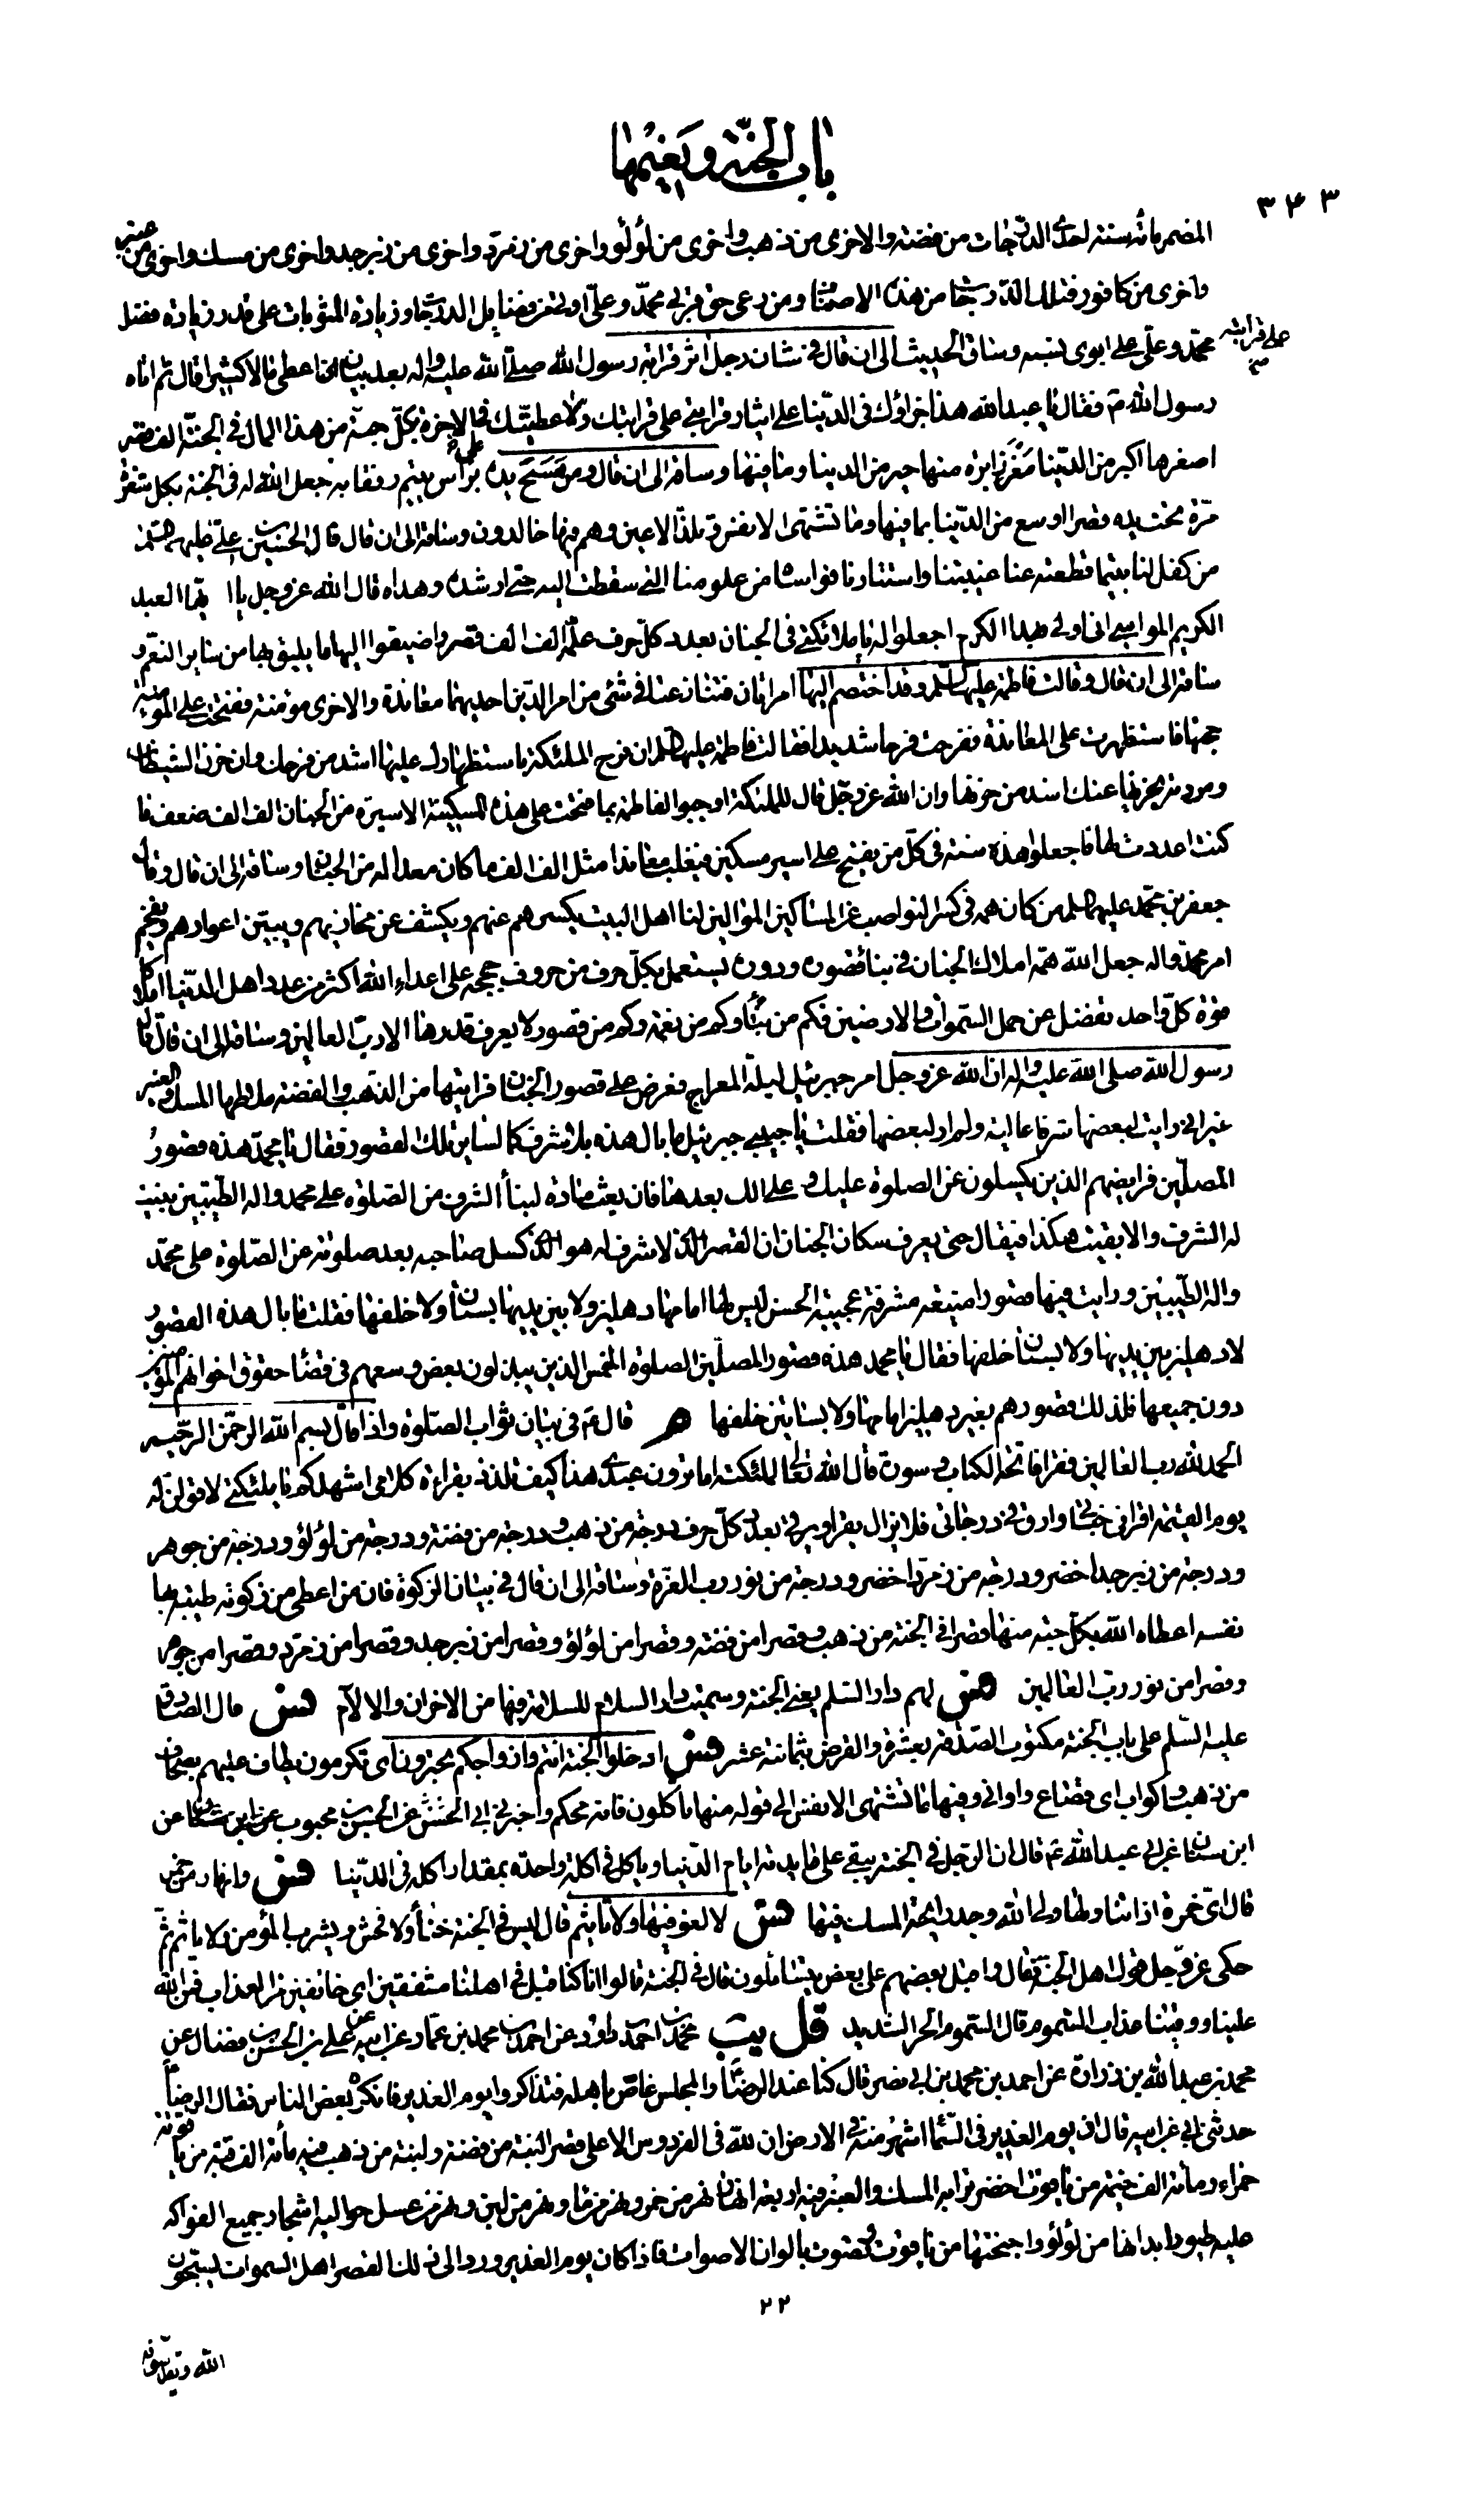 باب الجنة ونعيمها
٣٤٣
المضمر مائة سنة احدى الدرجات من فضة والاخرى من ذهب واخرى من لؤلؤ واخرى من زمرد واخرى من زبرجد واخرى من مسك واخرى من عنبر
واخرى من كافور فتلك الدرجات من هذه الاصناف ومن رعى حق قربى محمد وعلى اوتى من فضايل الدرجات وزيادة المثوبات على قدر زيادة فضل
محمد وعلى على ابوى نسبه وساق الحديث الى ان قال فى شان رجل اثر قرابة رسول الله صلى الله عليه واله على قرابته بعد بيان ان اعطى مالا كثيرا قال ثم اتاه
رسول الله ص فقال يا عبد الله هذا جزاؤك فى الدنيا على ايثار قرابتى على قرابتك ولاعطينك فى الاخرة بكل حبة من هذا المال فى الجنة الف قصر
اصغرها اكبر من الدنيا مغرز ابرة منها خير من الدنيا وما فيها وساقه الى ان قال ومن مسح يده على راس يتيم رفقا به جعل الله له فى الجنة بكل شعرة
مرت تحت يده قصرا اوسع من الدنيا بما فيها وما تشتهى الانفس وتلذ الاعين وهم فيها خالدون وساقه الى ان قال قال الحسين بن على عليهما السلم
من كفل لنا يتيما قطعته عنا غيبتنا واستتارنا فواساه من علومنا التى سقطت اليه حتى ارشده وهداه قال الله عز وجل يا ايها العبد
الكريم المواسى انى اولى بهذا الكرم اجعلوا له يا ملائكتى فى الجنان بعدد كل حرف علمه الف الف قصر واضيفوا اليها ما يليق بها من ساير النعم و
ساقه الى ان قال وقالت فاطمة عليها السلم وقد اختصم اليها امراتان فتنازعتا فى شئ من امر الدين احديهما معاندة والاخرى مؤمنة ففتحت على المؤمنة
حجتها فاستظهرت على المعاندة ففرحت فرحا شديدا فقالت فاطمة عليها السلم ان فرح الملئكة باستظهارك عليها اشد من فرحك وان حزن الشيطان
ومردته بحزنها عنك اشد من حزنها وان الله عز وجل قال للملئكة اوجبوا لفاطمة بما فتحت على هذه المسكينة الاسيرة من الجنان الف الف ضعف ما
كنت اعددت لها فاجعلوا هذه سنة فى كل من يفتح على اسير مسكين فيغلب معاندا مثل الف الف ما كان معدا له من الجنان وساقه الى ان قال وقال
جعفر بن محمد عليهما السلم من كان همه فى كسر النواصب عن المساكين الموالين لنا اهل البيت يكسرهم عنهم ويكشف عن مخازيهم ويبين اعوارهم ويفخم
امر محمد واله جعل الله همة املاك الجنان فى بناء قصوره ودوره يستعمل بكل حرف من حروف حججه على اعداء الله اكثر من عدد اهل الدنيا املاكا
قوة كل واحد تفضل عن حمل السموات والارضين فكم من بناء وكم من نعمة وكم من قصور لا يعرف قدرها الا رب العالمين وساقه الى ان قال قال
رسول الله صلى الله عليه واله ان الله عز وجل امر جبرئيل ليلة المعراج فعرض على قصور الجنان فرايتها من الذهب والفضة ملاطها المسك والعنبر
غير انى رايت لبعضها شرفا عالية ولم ار لبعضها فقلت يا حبيبى جبرئيل ما بال هذه بلا شرف كما لساير تلك القصور فقال يا محمد هذه قصور
المصلين فرايضهم الذين يكسلون عن الصلوة عليك وعلى الك بعدها فان بعث مادة لبناء الشرف من الصلوة على محمد واله الطيبين بنيت
له الشرف والا بقيت هكذا فيقال حتى يعرف سكان الجنان ان القصر الذى لا شرف له هو الذى كسل صاحبه بعد صلوته عن الصلوة على محمد
واله الطيبين ورايت فيها قصورا منيعة مشرفة عجيبة الحسن ليس لها امامها دهليز ولا بين يديها بستان ولا خلفها فقلت ما بال هذه القصور
لا دهليز بين يديها ولا بستان خلفها فقال يا محمد هذه قصور المصلين الصلوة الخمس الذين يبذلون بعض وسعهم فى قضاء حقوق اخوانهم المؤمنين
دون جميعها فلذلك قصورهم بغير دهليز امامها ولا بساتين خلفها هر قال ع فى بيان ثواب الصلوة واذا قال بسم الله الرحمن الرحيم
الحمد لله رب العالمين فقرا فاتحة الكتاب وسورة قال الله تعالى لملئكته اما ترون عبدى هذا كيف تلذذ بقراءة كلامى اشهدكم يا ملئكتى لاقولن له
يوم القيمة اقرا فى جنانى وارق فى درجاتى فلا يزال يقرا ويرقى بعدد كل حرف درجة من ذهب ودرجة من فضة ودرجة من لؤلؤ ودرجة من جوهر
ودرجة من زبرجد اخضر ودرجة من زمرد اخضر ودرجة من نور رب العزة وساقه الى ان قال فى بيان الزكوة فان من اعطى من زكوته طيبة بها
نفسه اعطاه الله بكل حبة منها قصرا فى الجنة من ذهب وقصرا من فضة وقصرا من لؤلؤ وقصرا من زبرجد وقصرا من زمرد وقصرا من جوهر
وقصرا من نور رب العالمين فس لهم دار السلم يعنى الجنة وسميت دار السلام للسلامة فيها من الاحزان والالام فس قال الصادق
عليه السلم على باب الجنة مكتوب الصدقة بعشرة والقرض بثمانية عشر فس ادخلوا الجنة انتم وازواجكم تحبرون اى تكرمون يطاف عليهم بصحاف
من ذهب واكواب اى قصاع واوانى وفيها ما تشتهى الانفس الى قوله منها تاكلون فانه محكم واخبرنى ابى عن الحسن بن محبوب عن ابن يسار عن
ابن سنان عن ابى عبد الله ع قال ان الرجل فى الجنة يبقى على مائدته ايام الدنيا وياكل فى اكلة واحدة بمقدار اكله فى الدنيا فس وانهار من خمر
قال اى خمرة اذا تناولها ولى الله وجد رايحة المسك فيها فس لا لغو فيها ولا تاثيم قال ليس فى الجنة غناء ولا فحش ويشرب المؤمن ولا ياثم ثم
حكى عز وجل قول اهل الجنة فقال واقبل بعضهم على بعض يتسائلون قال فى الجنة قالوا انا كنا قبل فى اهلنا مشفقين اى خائفين من العذاب فمن الله
علينا ووقينا عذاب السموم قال السموم الحر الشديد قل يب محمد بن احمد بن داود عن احمد بن محمد بن عمار عن ابيه عن على بن الحسن بن فضال عن
محمد بن عبد الله بن زرارة عن احمد بن محمد بن ابى نصر قال كنا عند الرضا ع والمجلس غاص باهله فتذاكروا يوم الغدير فانكره بعض الناس فقال الرضا ع
حدثنى ابى عن ابيه قال ان يوم الغدير فى السماء اشهر منه فى الارض ان لله فى الفردوس الاعلى قصرا لبنة من فضة ولبنة من ذهب فيه مائة الف قبة من ياقوتة
حمراء ومائة الف خيمة من ياقوت اخضر ترابه المسك والعنبر فيه اربعة انهار نهر من خمر ونهر من ماء ونهر من لبن ونهر من عسل حواليه اشجار جميع الفواكه
عليه طيور ابدانها من لؤلؤ واجنحتها من ياقوت وتصوت بالوان الاصوات فاذا كان يوم الغدير ورد الى ذلك القصر اهل السموات يسبحون
٢٢
الله ويقدسونه